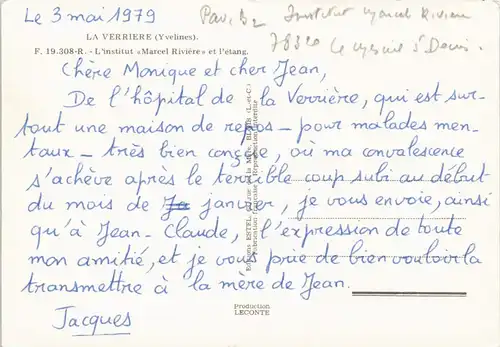 Le 3 mai 1979
Pav. B2 Institut Marcel Rivière
78320 Le Mesnil St Denis.
LA VERRIERE (Yvelines).
F. 19.308-R. - L'institut «Marcel Rivière» et l'étang.
Chère Monique et cher Jean,
De l'hôpital de la Verrière, qui est sur-
tout une maison de repos - pour malades men-
taux - très bien conçue, où ma convalescence
s'achève après le terrible coup subi au début
du mois de Ja janvier, je vous envoie, ainsi
qu'à Jean-Claude, l'expression de toute
mon amitié, et je vous prie de bien vouloir la
transmettre à la mère de Jean.
Jacques
Editions ESTEL, rue de la Mare, BLOIS (L.-et-C.)
Fabrication française - Reproduction interdite
Production
LECONTE